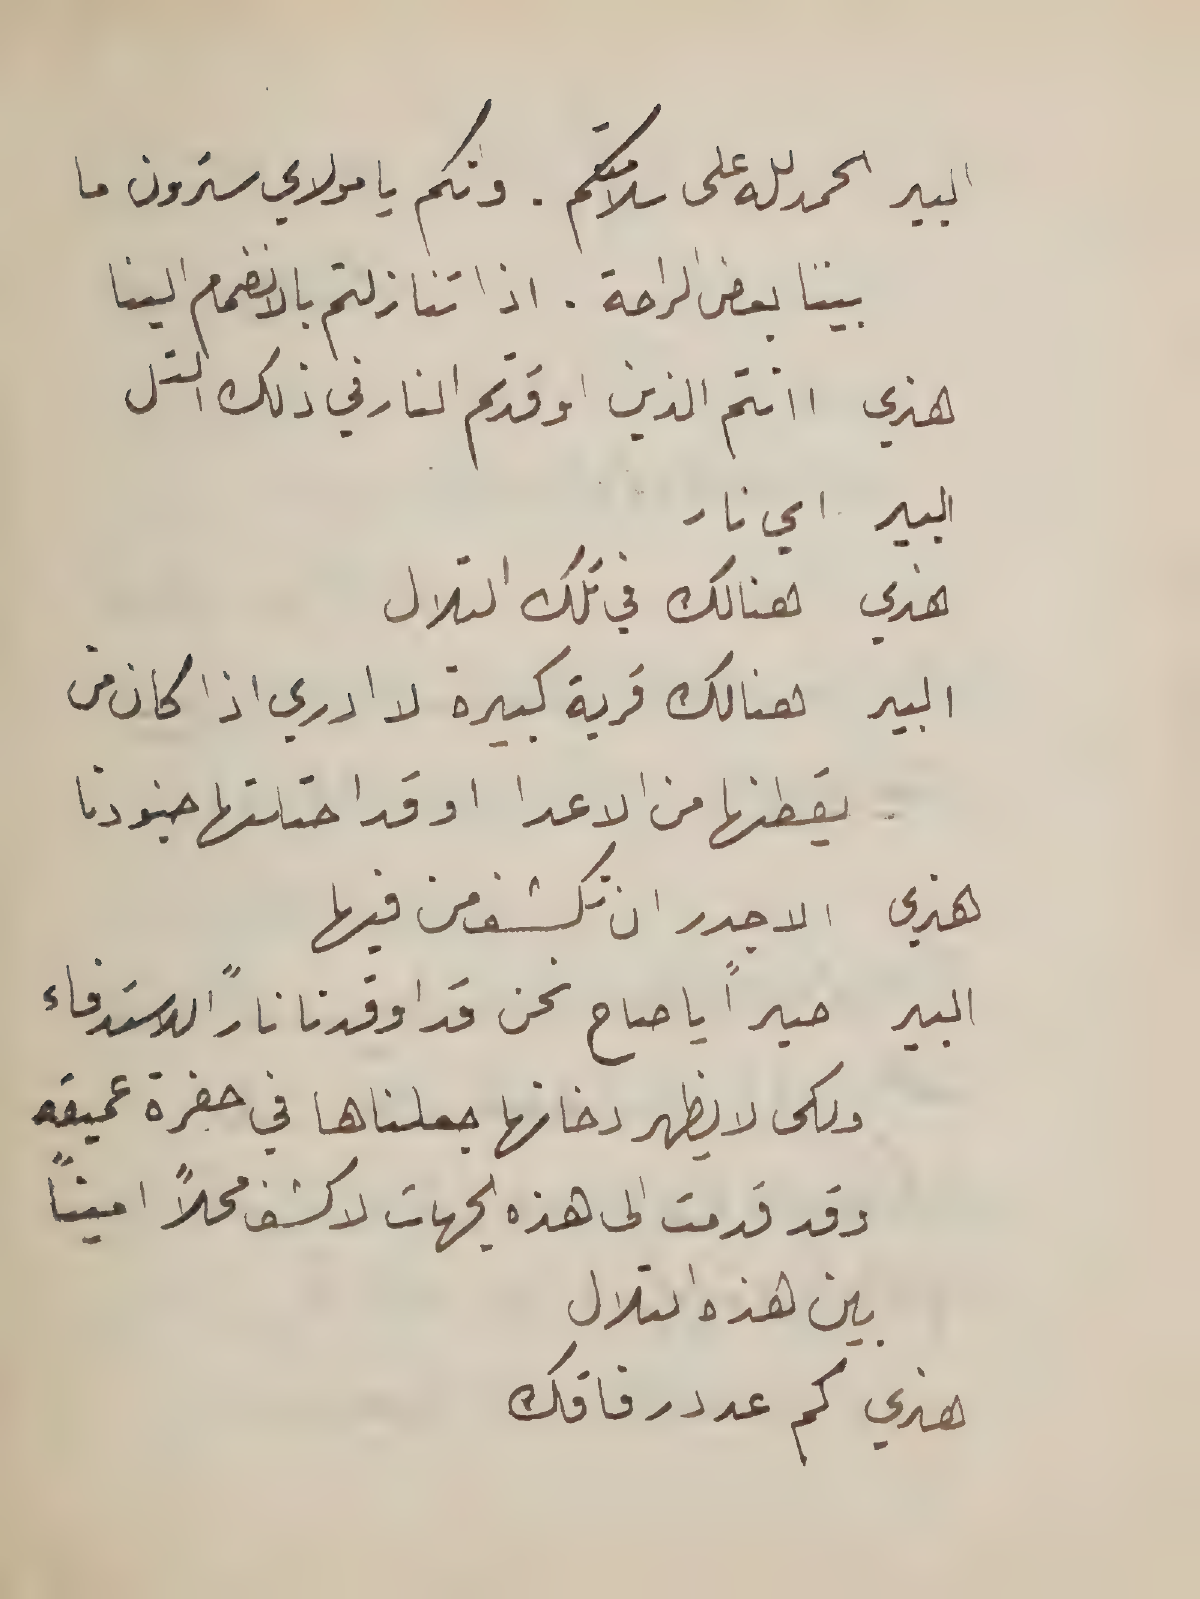 البير الحمد لله على سلامتكم . وانكم يا مولاي سترون ما
بيننا بعض الراحة . اذا تنازلتم بالانضمام الينا
هنري اانتم الذين اوقدتم النار في ذلك التل
البير اي نار
هنري هنالك في تلك التلال
البير هنالك قرية كبيرة لا ادري اذا كان من
يقطنها من الاعدا او قد احتلتها جنودنا
هنري الاجدر ان نكشف من فيها
البير خيراً يا صاح نحن قد اوقدنا ناراً للاستدفاء
ولكى لا يظهر دخانها جعلناها في حفرة عميقه
وقد قدمت الى هذه الجهات لاكشف محلاً اميناً
بين هذه التلال
هنري كم عدد رفاقك